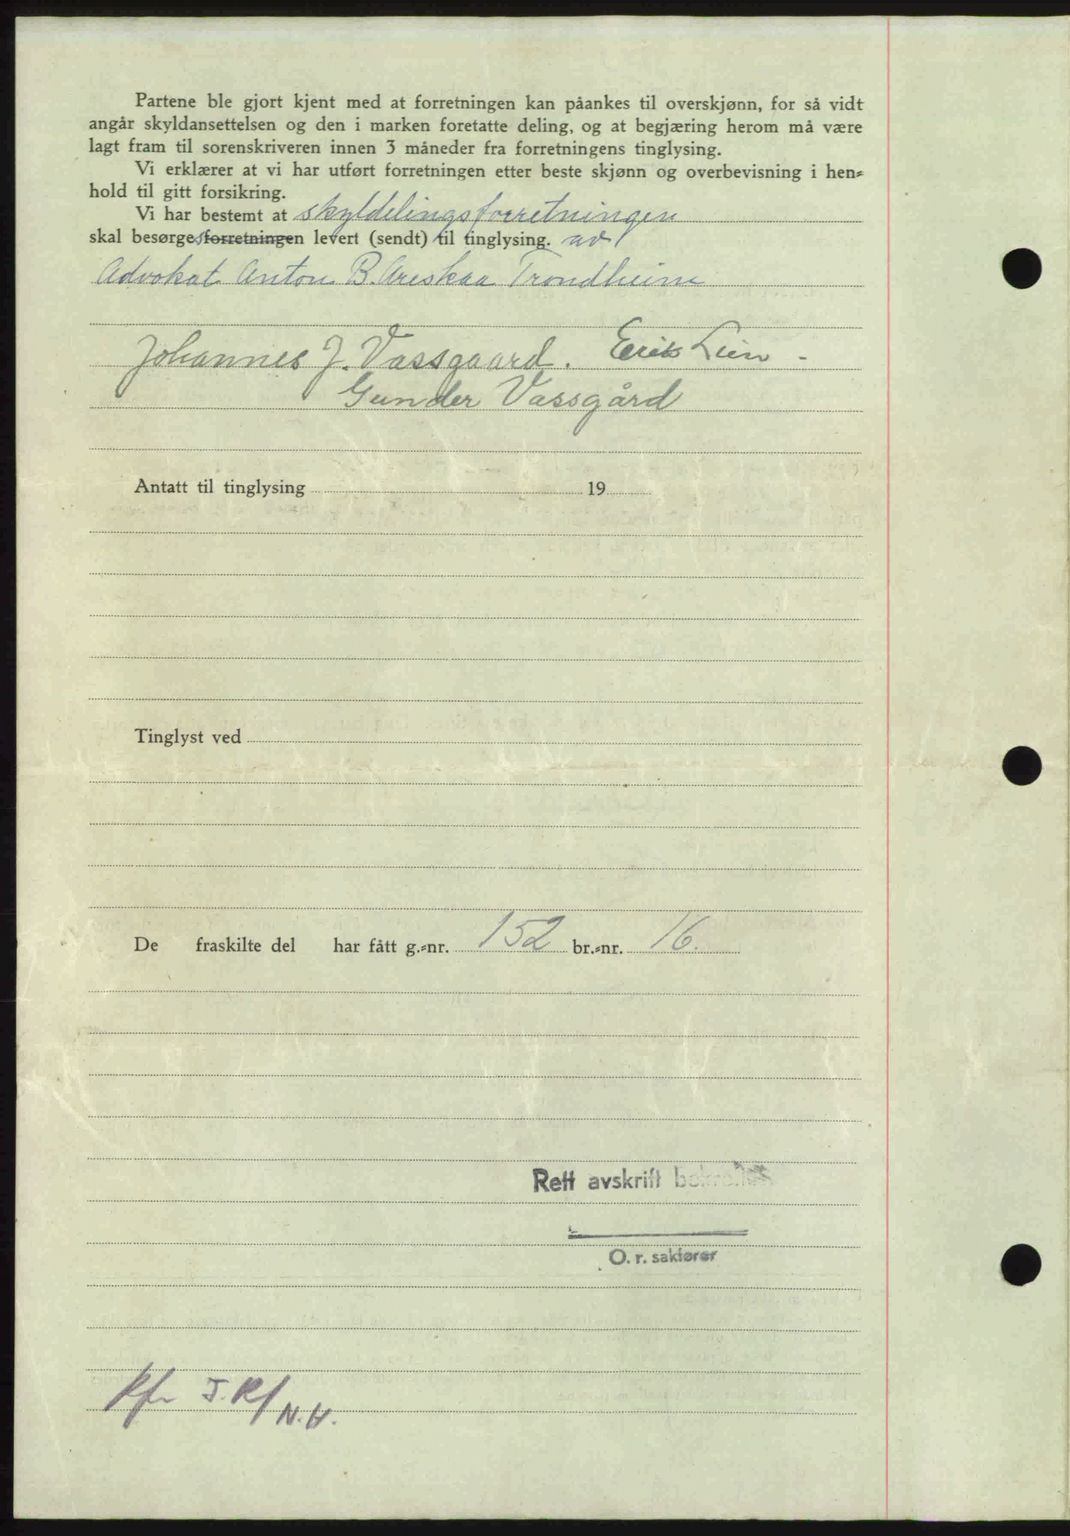 Partene ble gjort kjent med at forretningen kan påankes til overskjønn, for så vidt
angår skyldansettelsen og den i marken foretatte deling, og at begjæring herom må være
lagt fram til sorenskriveren innen 3 måneder fra forretningens tinglysing.
Vi erklærer at vi har utført forretningen etter beste skjønn og overbevisning i hen-
hold til gitt forsikring.
Vi har bestemt at skyldelingsforretningen
skal besørges forretningen levert (sendt) til tinglysing. av
Advokat Anton B. Areskaa Trondheim
Johannes J. Vassgaard. Erik Lien -
Gunder Vassgård
Antatt til tinglysing 19
Tinglyst ved
De fraskilte del har fått g.-nr. 152 br.-nr. 16.
Rett avskrift bekreftes
O. r. sakfører
J.R/
N.H.